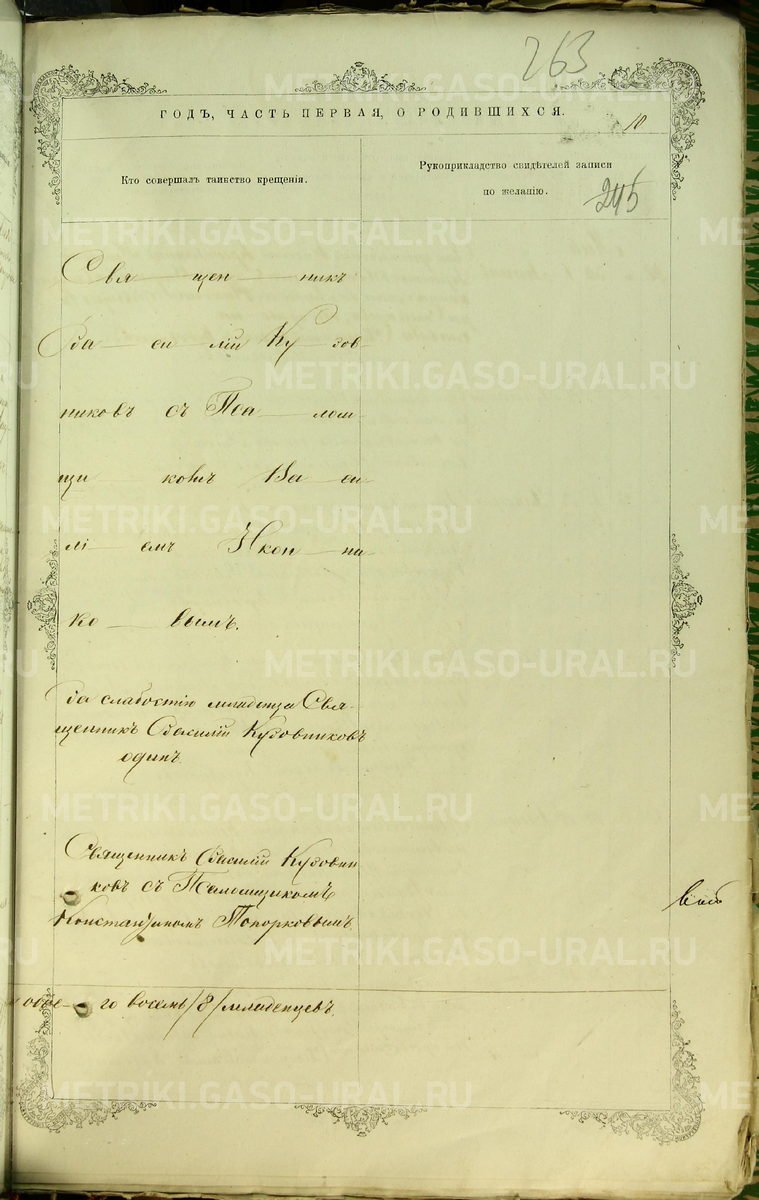 263
ГОДЪ, ЧАСТЬ ПЕРВАЯ, О РОДИВШИХСЯ.
10
Кто совершалъ таинство крещенія.
Рукоприкладство свидѣтелей записи
по желанію.
245
Свя—щен—никъ
Ва—си—лій Ку—зов-
никовъ съ Пса—лом-
щи—комъ Ва—си-
лі—емъ Икон—ни-
ко—вымъ.
За слабостію младенца Свя-
щенникъ Василій Кузовниковъ
одинъ.
Священникъ Василій Кузовни
ковъ съ Псаломщикомъ
Константиномъ Топорковымъ.
го восемь /8/ младенцевъ.
METRIKI.GASO-URAL.RU